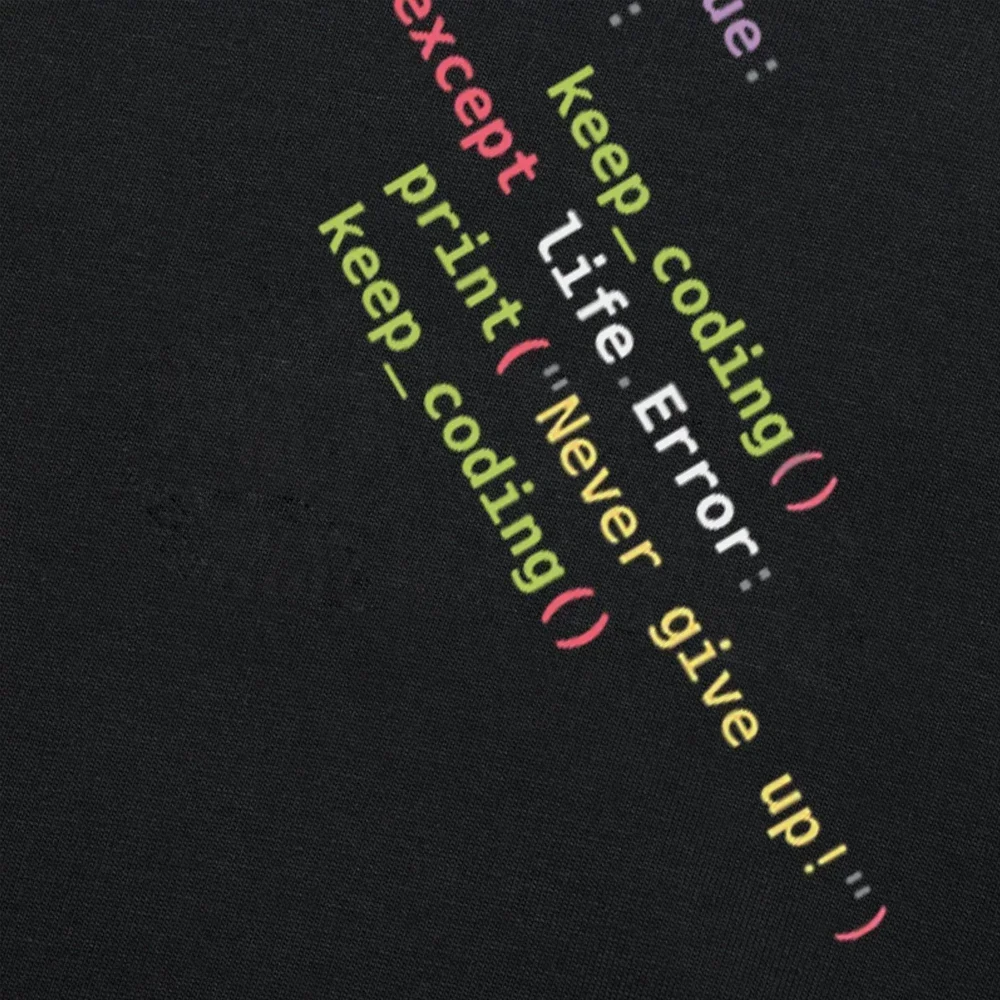 ue:
:
keep_coding()
except life.Error:
print("Never give up!")
keep_coding()